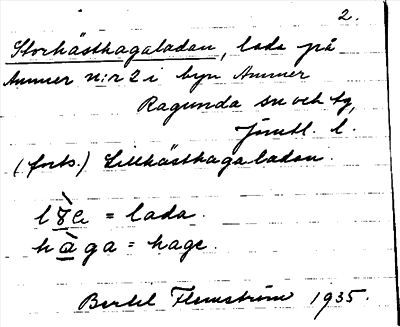 2.
Storhästhagaladan, lada på
Ammer n:r 2 i byn Ammer
Ragunda sn och tg,
Jämtl. l.
(forts.) Lillhästhagaladan.
= lada.
hàga = hage.
Bertel Flemström 1935.